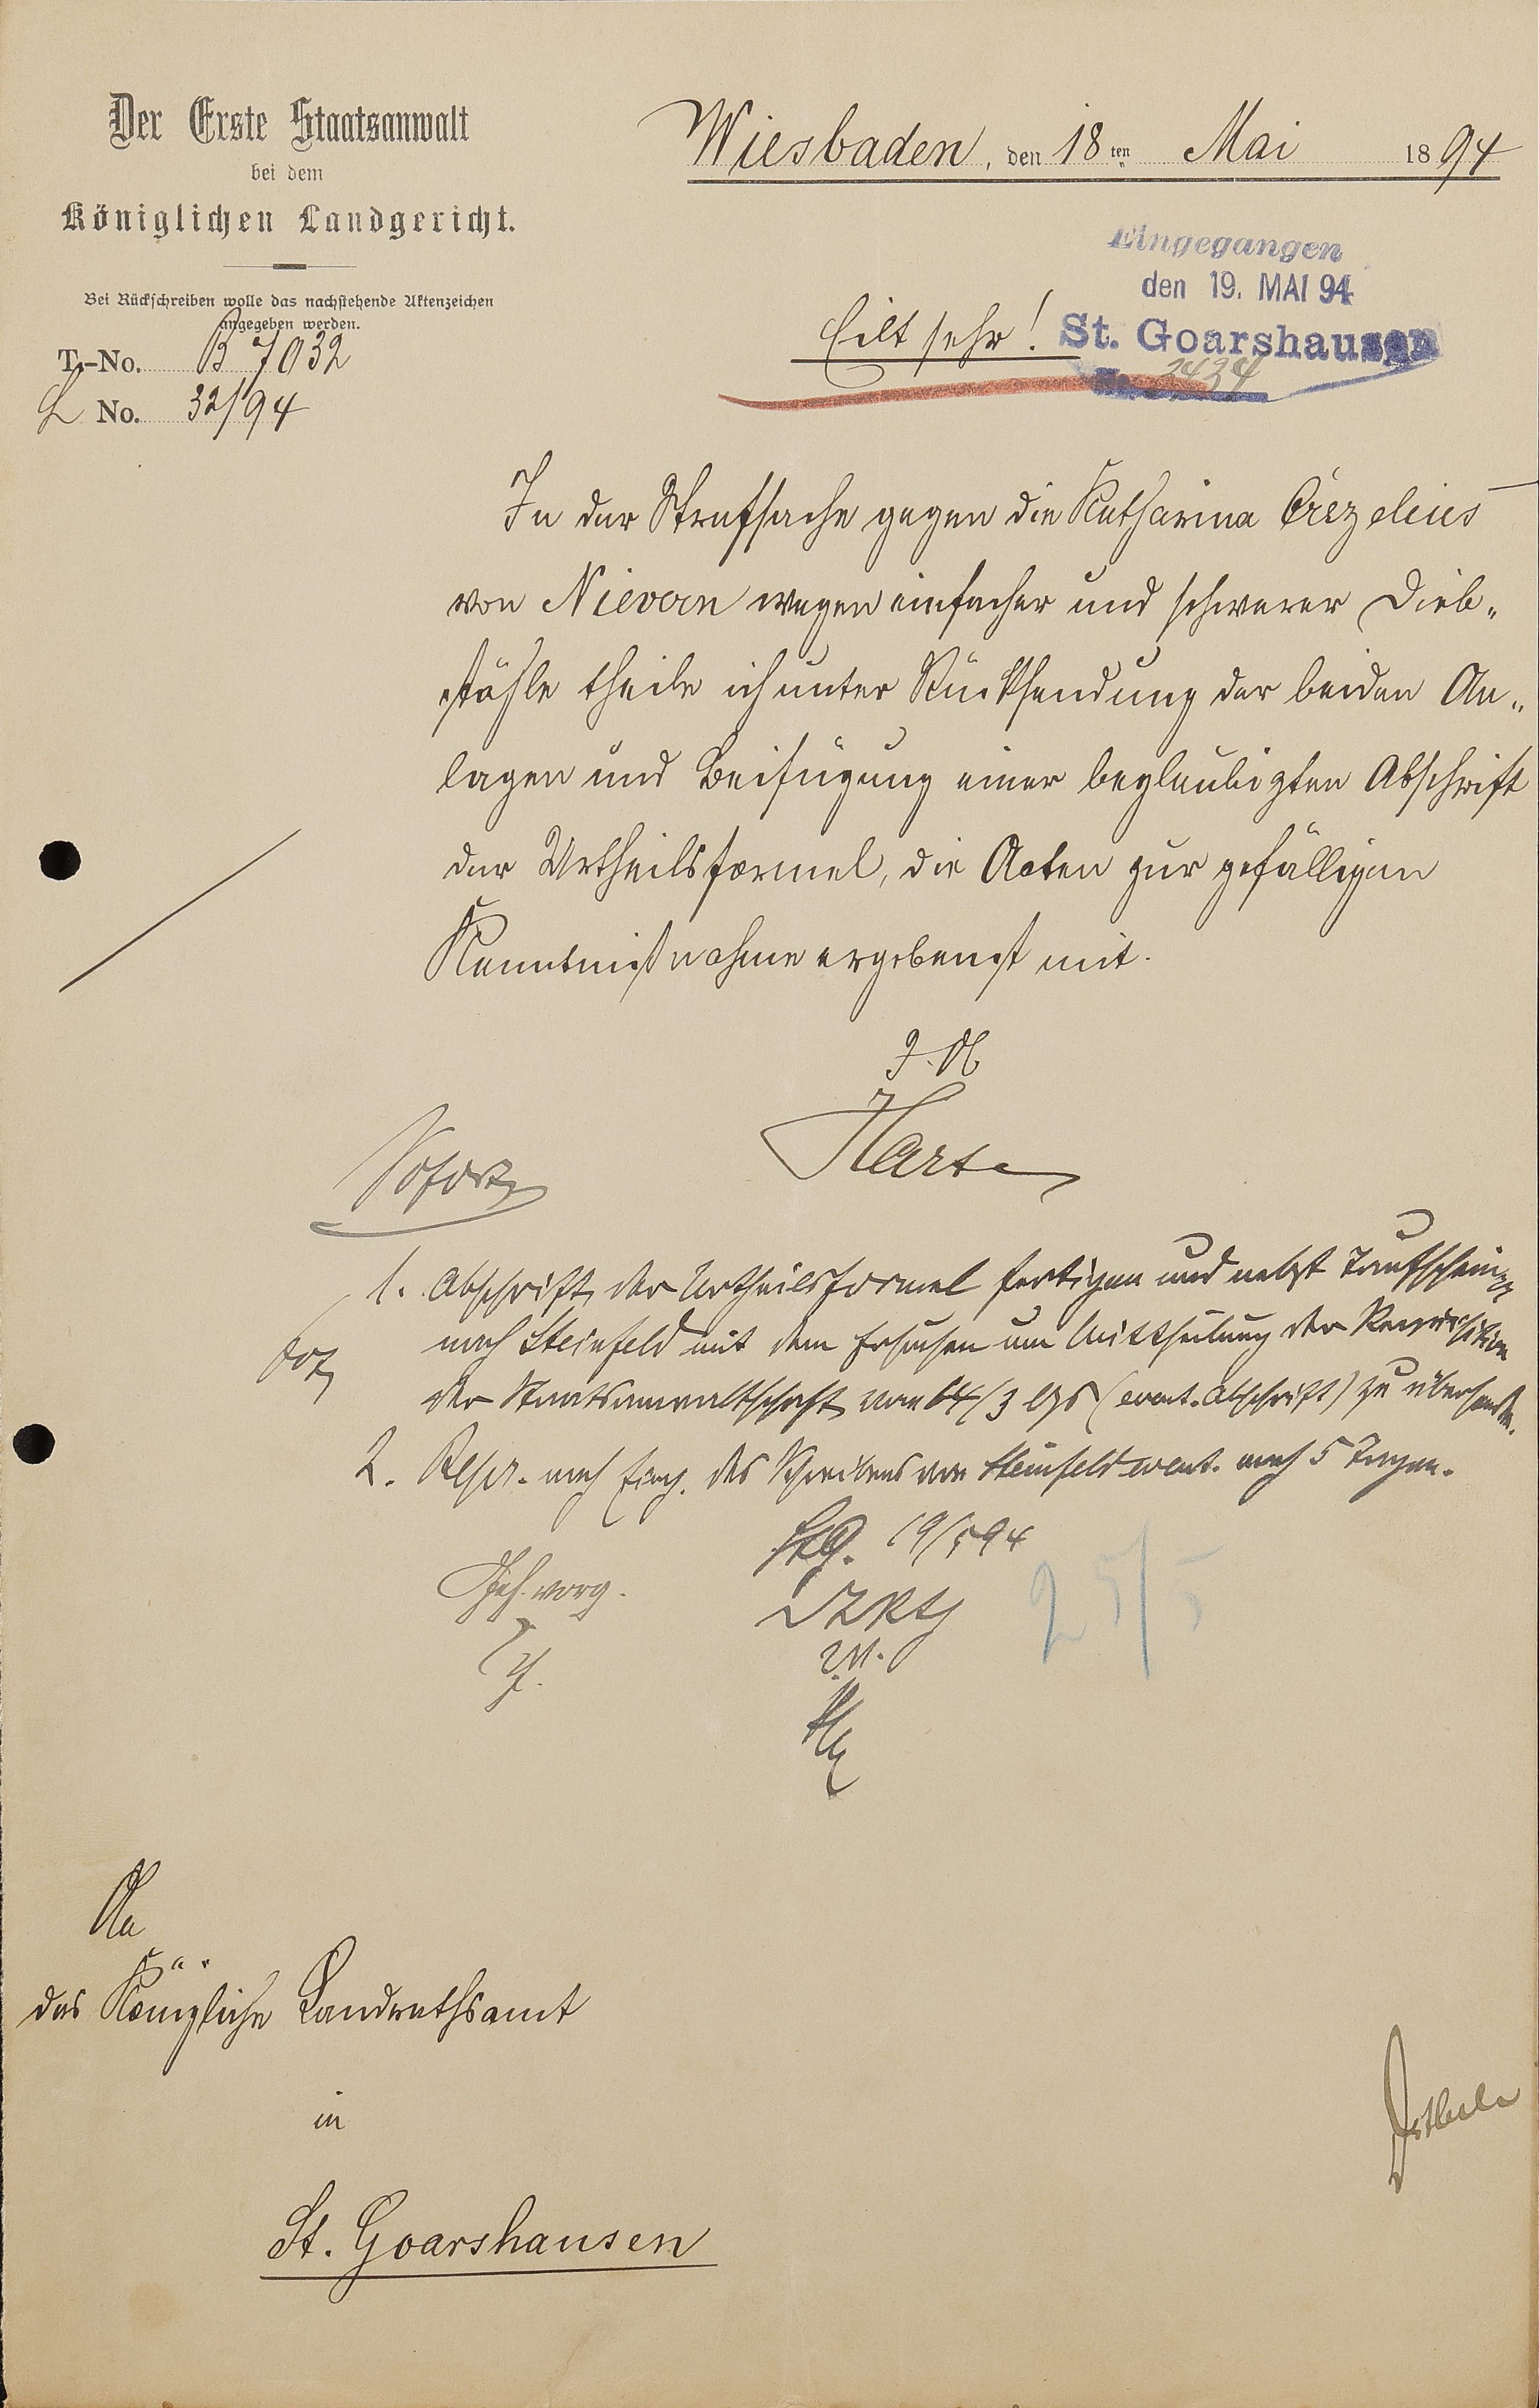 Der Erste Staatsanwalt
bei dem
Königlichen Landgericht.
Bei Rückschreiben wolle das nachstehende Aktenzeichen
angegeben werden.
T.-No. B 7032
L No. 32/94
Wiesbaden, den 18ten Mai 1894
Eingegangen
den 19. MAI 94
St. Goarshausen
No. 2434
Eilt sehr!
In der Strafsache gegen die Katharina Crezelius
von Nievern wegen einfacher und schwerer Dieb-
stähle theile ich unter Rücksendung der beiden An-
lagen und Beifügung einer beglaubigten Abschrift
der Urtheilsformel, die Acten zur gefälligen
Kenntnißnahme ergebenst mit.
J. A.
Sofort
1. Abschrift der Urtheilsformel fertigen und nebst Taufschein
nach Steinfeld mit dem Ersuchen um Mittheilung der Requisition
der Staatsanwaltschaft vom (event. Abschrift) zu übersenden.
2. nach Eing. des Schreibens von Steinfeld event. nach 5 Tagen.
StG. 19/5 94
25/5
An
das Königliche Landrathsamt
in
St. Goarshausen